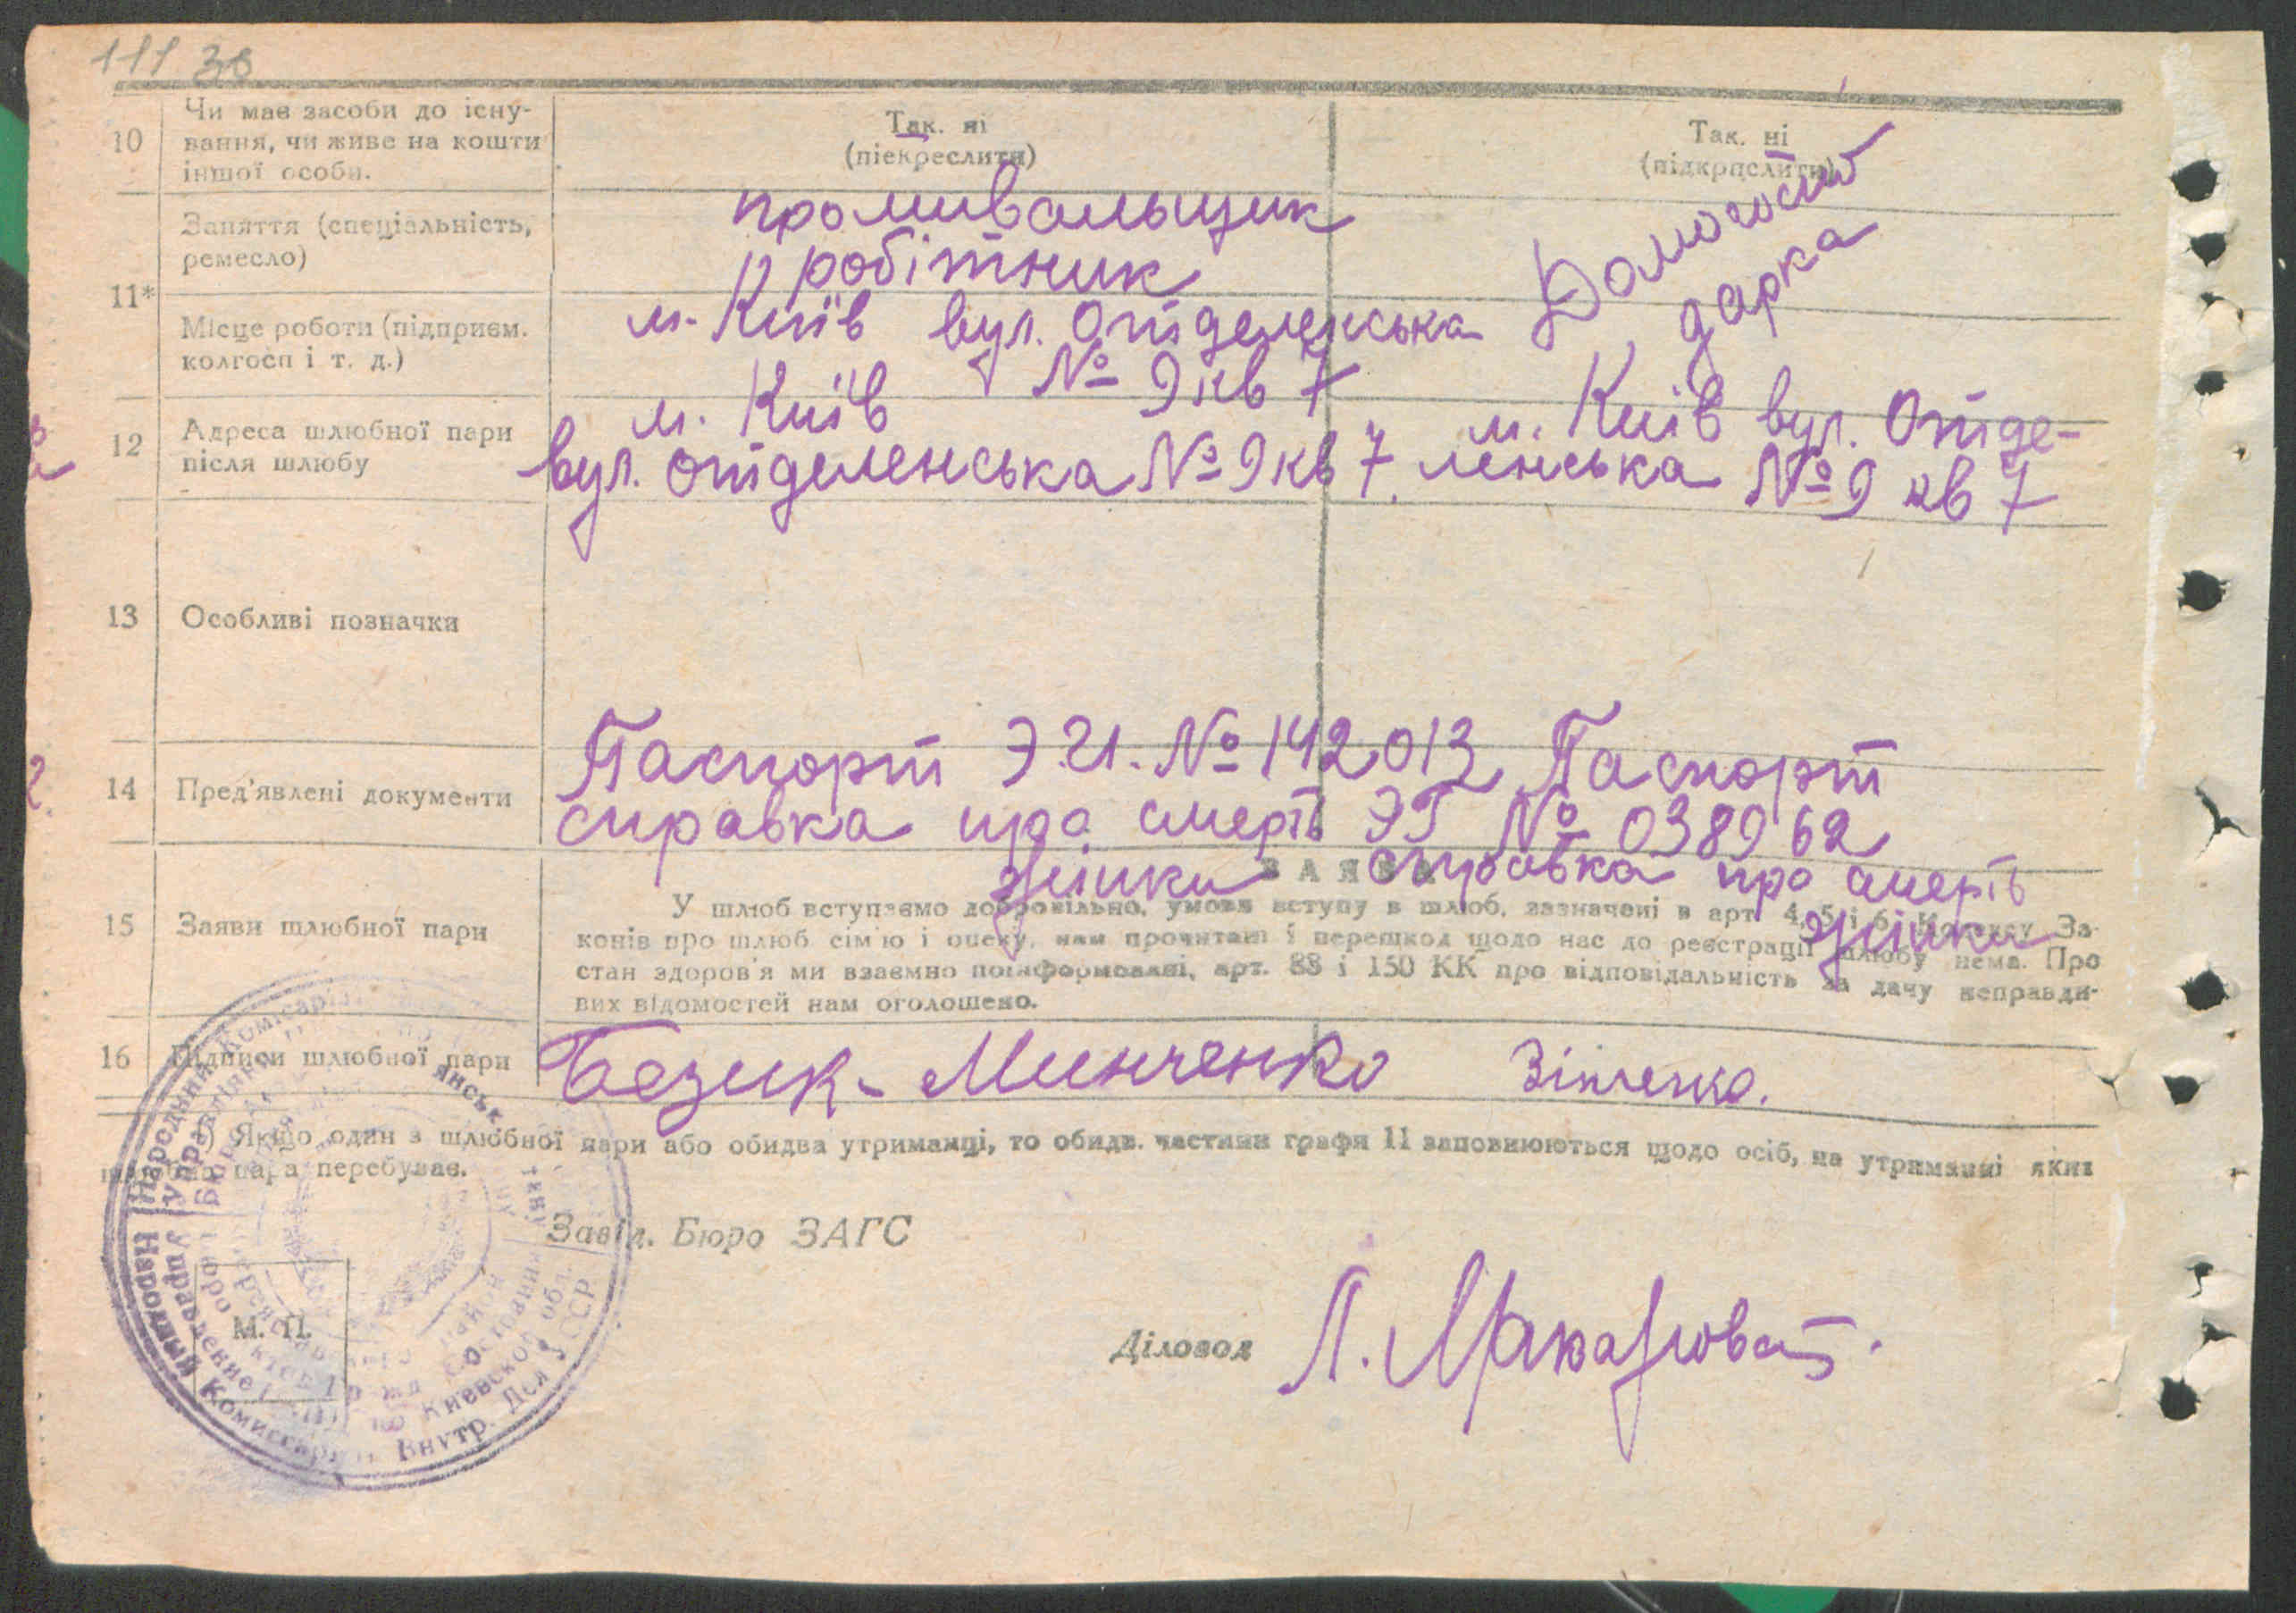 111 38
10
Чи має засоби до існу-
вання, чи живе на кошти
іншої особи.
Так. ні
(піекреслити)
Так. ні
(підкрпслити)
11*
Заняття (спеціальність,
ремесло)
промивальщик
робітник
Домогоспо
дарка
Місце роботи (підприєм.
колгосп і т. д.)
м. Київ вул. Отделенська
№ 9 кв 7
12
Адреса шлюбної пари
після шлюбу
м. Київ
вул. Отделенська № 9 кв 7.
м. Київ вул. Отде-
ленська № 9 кв 7
13
Особливі позначки
14
Пред'явлені документи
Паспорт Э.21. № 142013
справка про смерть
жінки
Паспорт
ЭГ № 038962
справка про смерть
жінки
15
Заяви шлюбної пари
У шлюб вступаємо добровільно, умови вступу в шлюб, зазначені в арт. 4, 5 і 6 Кодексу За-
конів про шлюб сім'ю і опеку, нам прочитані і перешкод щодо нас до реєстрації шлюбу нема. Про
стан здоров'я ми взаємно поінформовані, арт. 88 і 150 КК про відповідальність за дачу неправди-
вих відомостей нам оголошено.
16
Підписи шлюбної пари
Безик-Минченко
Зінченко.
*) Якщо один з шлюбної пари або обидва утриманці, то обидв. частини графи 11 заповнюються щодо осіб, на утриманні яких
шлюбна пара перебуває.
Завід. Бюро ЗАГС
М. П.
Діловод
Л. Макарова
Народний Комісаріат
Управління
Народный Комиссариат Внутр. Дел УССР
Управление
Киевской обл.